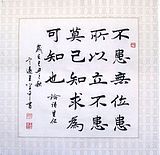 不患無位患
所以立不患
莫己知求為
可知也 論語里仁